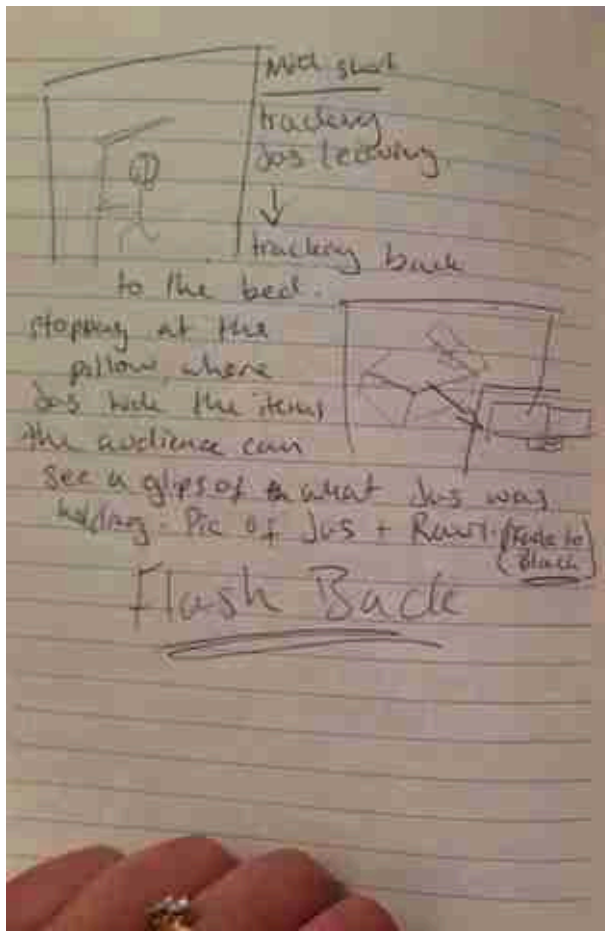 Mid shot
tracking
Jas leaving.
tracking back
to the bed.
stopping at the
pillow, where
Jas hide the items
the audience can
see a glips of what Jas was
holding. Pic of Jas +
(Fade to
Black)
Flash Back